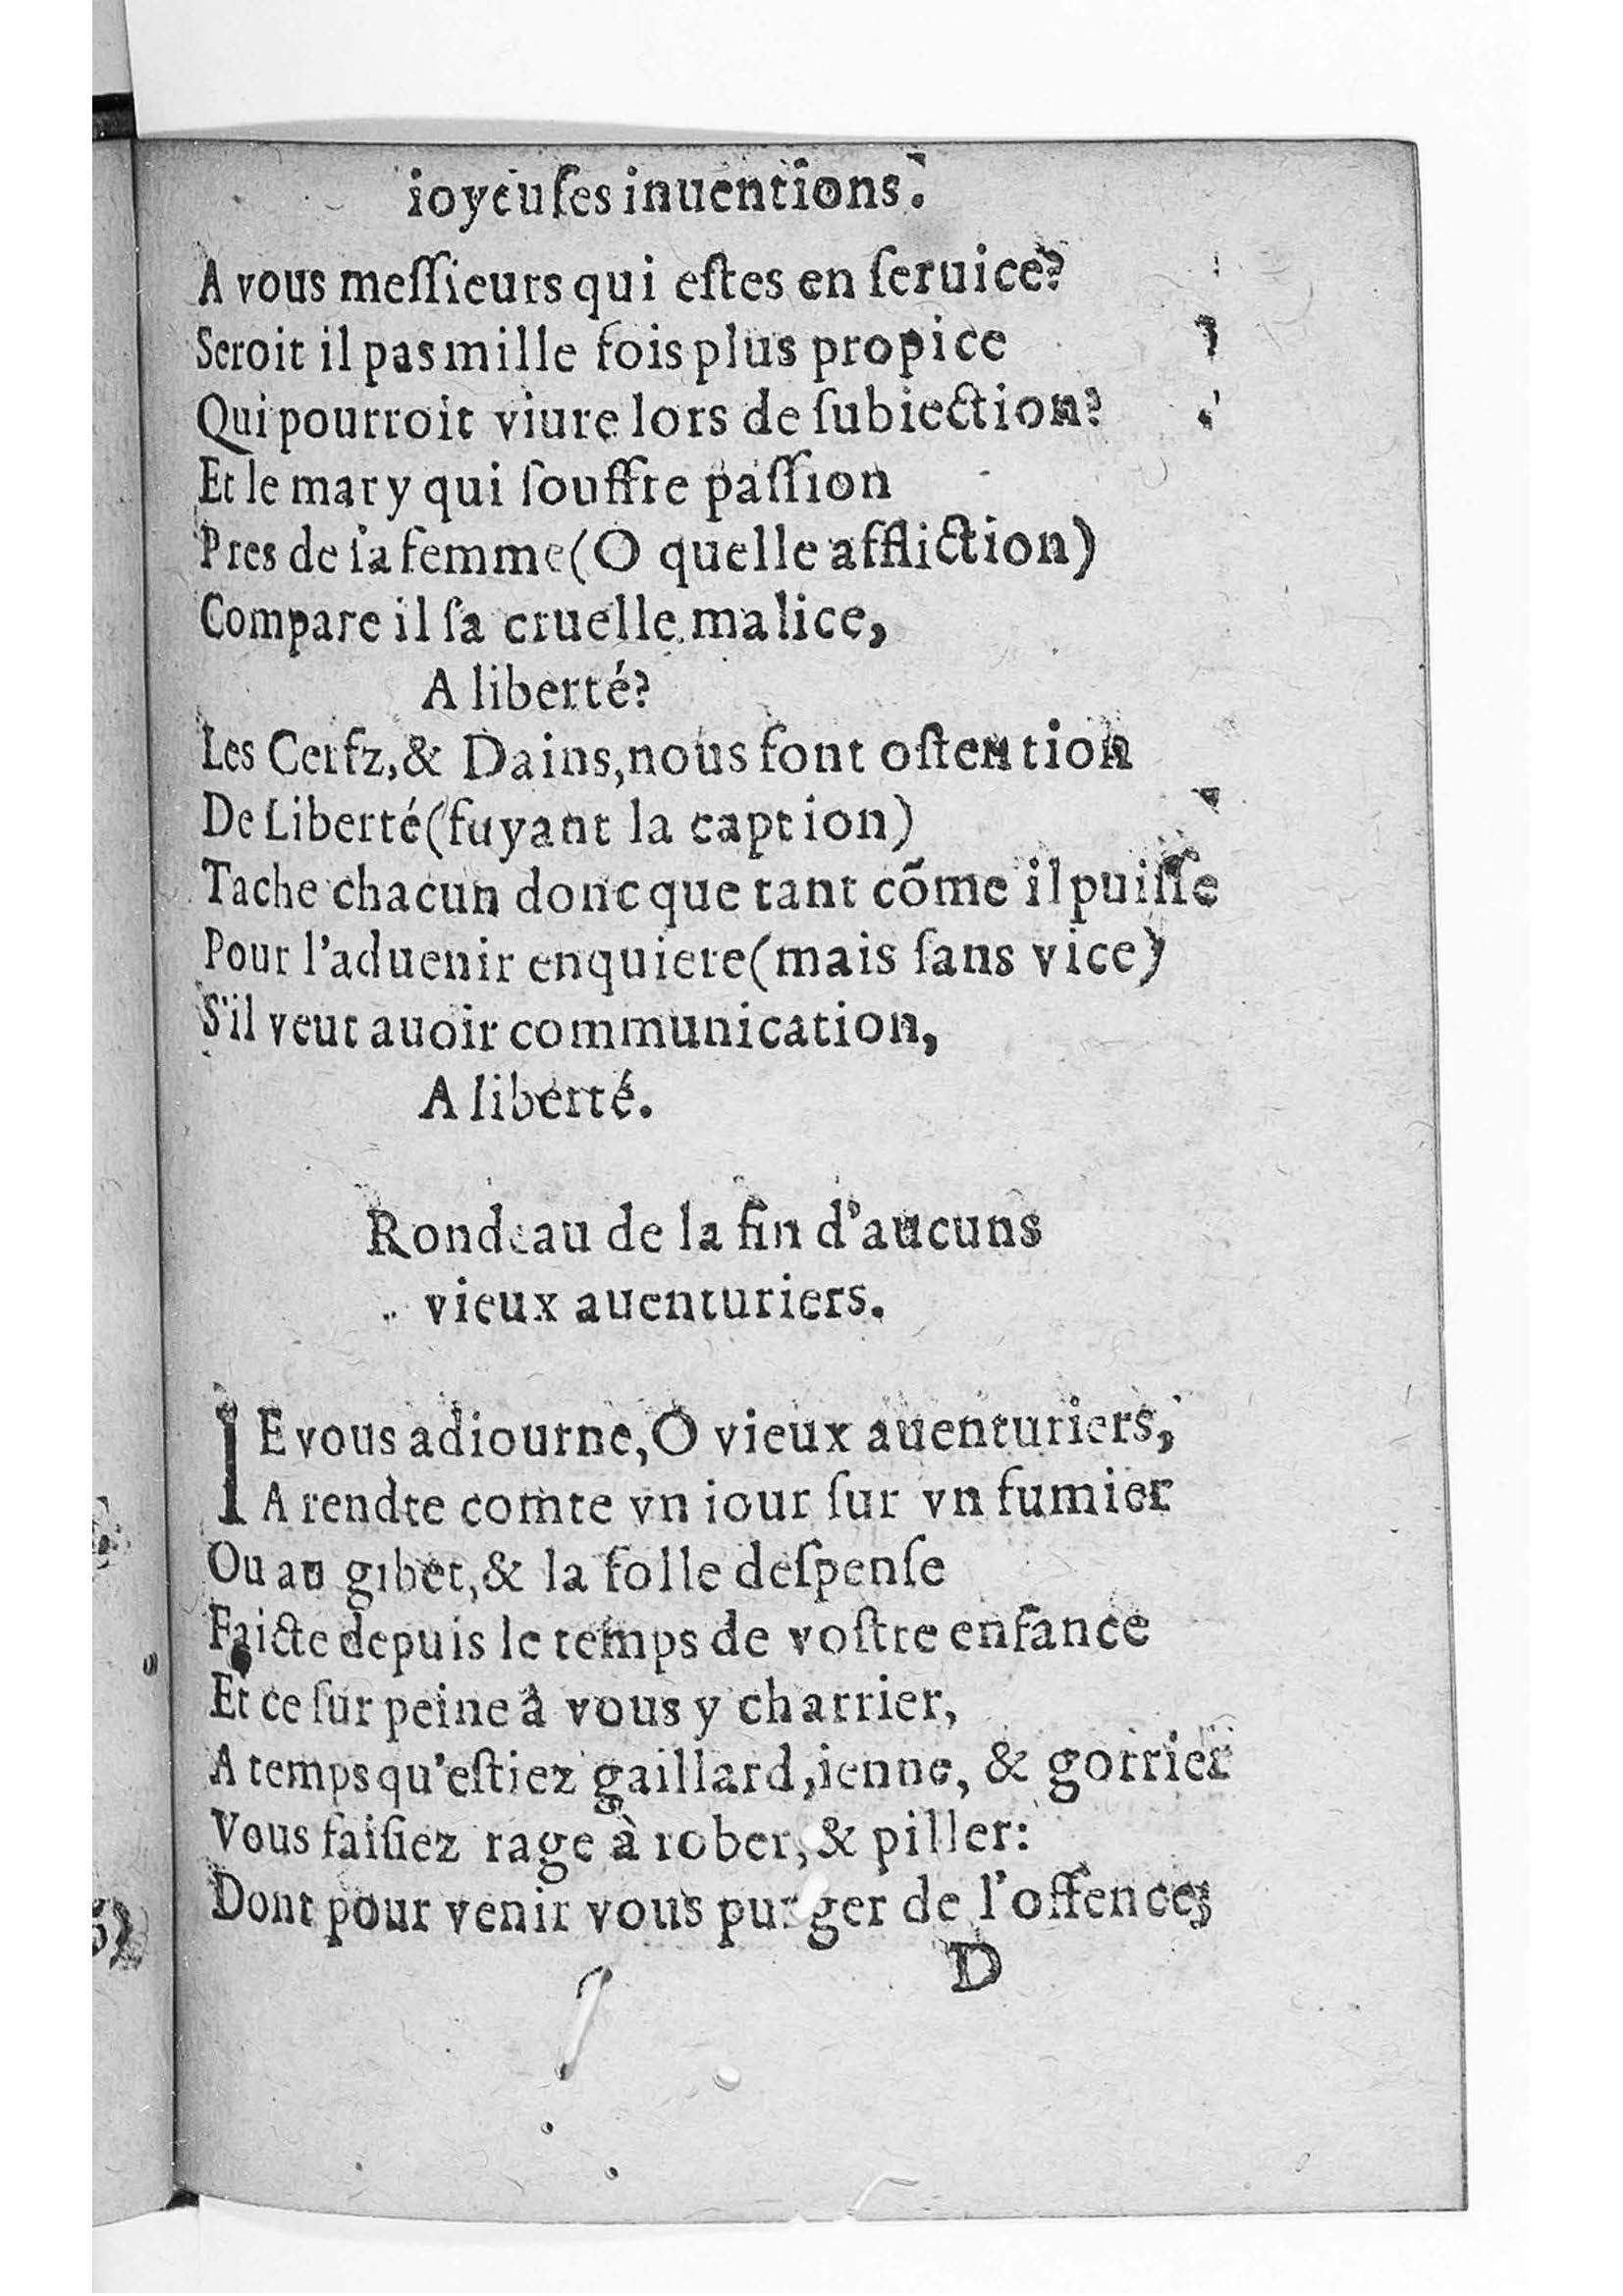 ioyeuſes inuentions.
A vous meſſieurs qui eſtes en ſeruice?
Seroit il pas mille fois plus propice
Qui pourroit viure lors de ſubiection?
Et le mary qui ſouffre paſſion
Pres de ſa femme (O quelle affliction)
Compare il ſa cruelle malice,
A liberté?
Les Cerfz, & Dains, nous font oſtention
De Liberté (fuyant la caption)
Tache chacun donc que tant cõme il puiſſe
Pour l'aduenir enquiere (mais ſans vice)
S'il veut auoir communication,
A liberté.
Rondeau de la fin d'aucuns
vieux auenturiers.
IE vous adiourne, O vieux auenturiers,
A rendre comte vn iour ſur vn fumier
Ou au gibet, & la folle deſpenſe
Faicte depuis le temps de voſtre enfance
Et ce ſur peine â vous y charrier,
A temps qu'eſtiez gaillard, ienne, & gorrier
Vous faiſiez rage à rober, & piller:
Dont pour venir vous purger de l'offence;
D